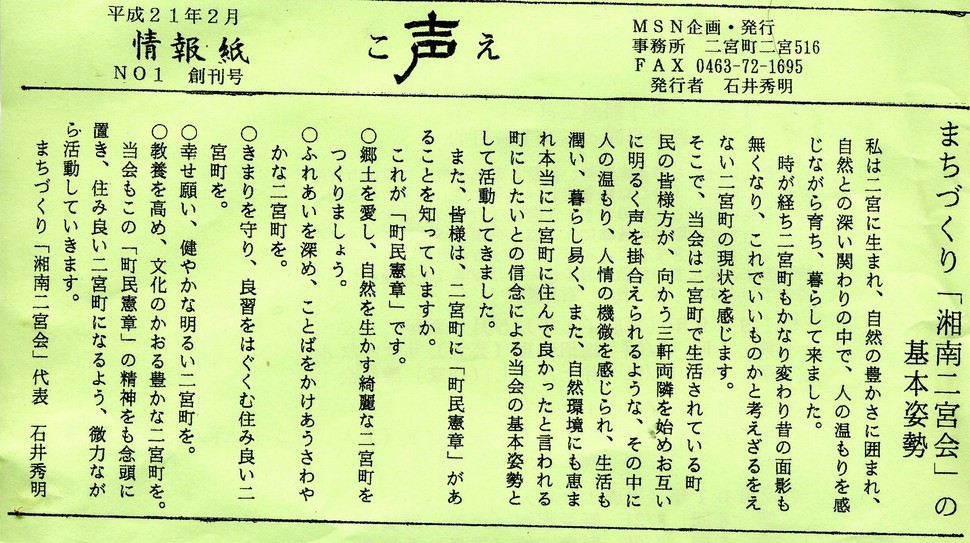 平成21年2月
情報紙
NO1 創刊号
こ声え
MSN企画・発行
事務所 二宮町二宮516
FAX 0463-72-1695
発行者 石井秀明
まちづくり「湘南二宮会」の
基本姿勢
私は二宮に生まれ、自然の豊かさに囲まれ、
自然との深い関わりの中で、人の温もりを感
じながら育ち、暮らして来ました。
時が経ち二宮町もかなり変わり昔の面影も
無くなり、これでいいものかと考えざるをえ
ない二宮町の現状を感じます。
そこで、当会は二宮町で生活されている町
民の皆様方が、向かう三軒両隣を始めお互い
に明るく声を掛合えられるような、その中に
人の温もり、人情の機微を感じられ、生活も
潤い、暮らし易く、また、自然環境にも恵ま
れ本当に二宮町に住んで良かったと言われる
町にしたいとの信念による当会の基本姿勢と
して活動してきました。
また、皆様は、二宮町に「町民憲章」があ
ることを知っていますか。
これが「町民憲章」です。
○郷土を愛し、自然を生かす綺麗な二宮町を
つくりましょう。
○ふれあいを深め、ことばをかけあうさわや
かな二宮町を。
○きまりを守り、良習をはぐくむ住み良い二
宮町を。
○幸せ願い、健やかな明るい二宮町を。
○教養を高め、文化のかおる豊かな二宮町を。
当会もこの「町民憲章」の精神をも念頭に
置き、住み良い二宮町になるよう、微力なが
ら活動していきます。
まちづくり「湘南二宮会」代表 石井秀明